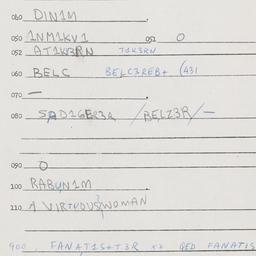 060 DIN1M
050 1NM1KV1 051 O
052 AT1K3RN T1K3RN
060 BELC BELC3REB+ (431
070 —
080 SAD1GER3R /BELZ3R/ —
090 O
100 RABUN1M
110 A VIRTUOUS WOMAN
900 FANAT1S+T3R xx QED FANATIS